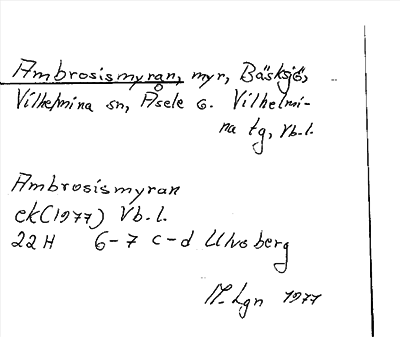 Ambrosismyran, myr, Bäsksjö,
Vilhelmina sn, Åsele G. Vilhelmi-
na tg, Vb.l.
Ambrosismyran
ek(1977) Vb.l.
22H 6-7 c-d Ulvoberg
M. Lgn 1977